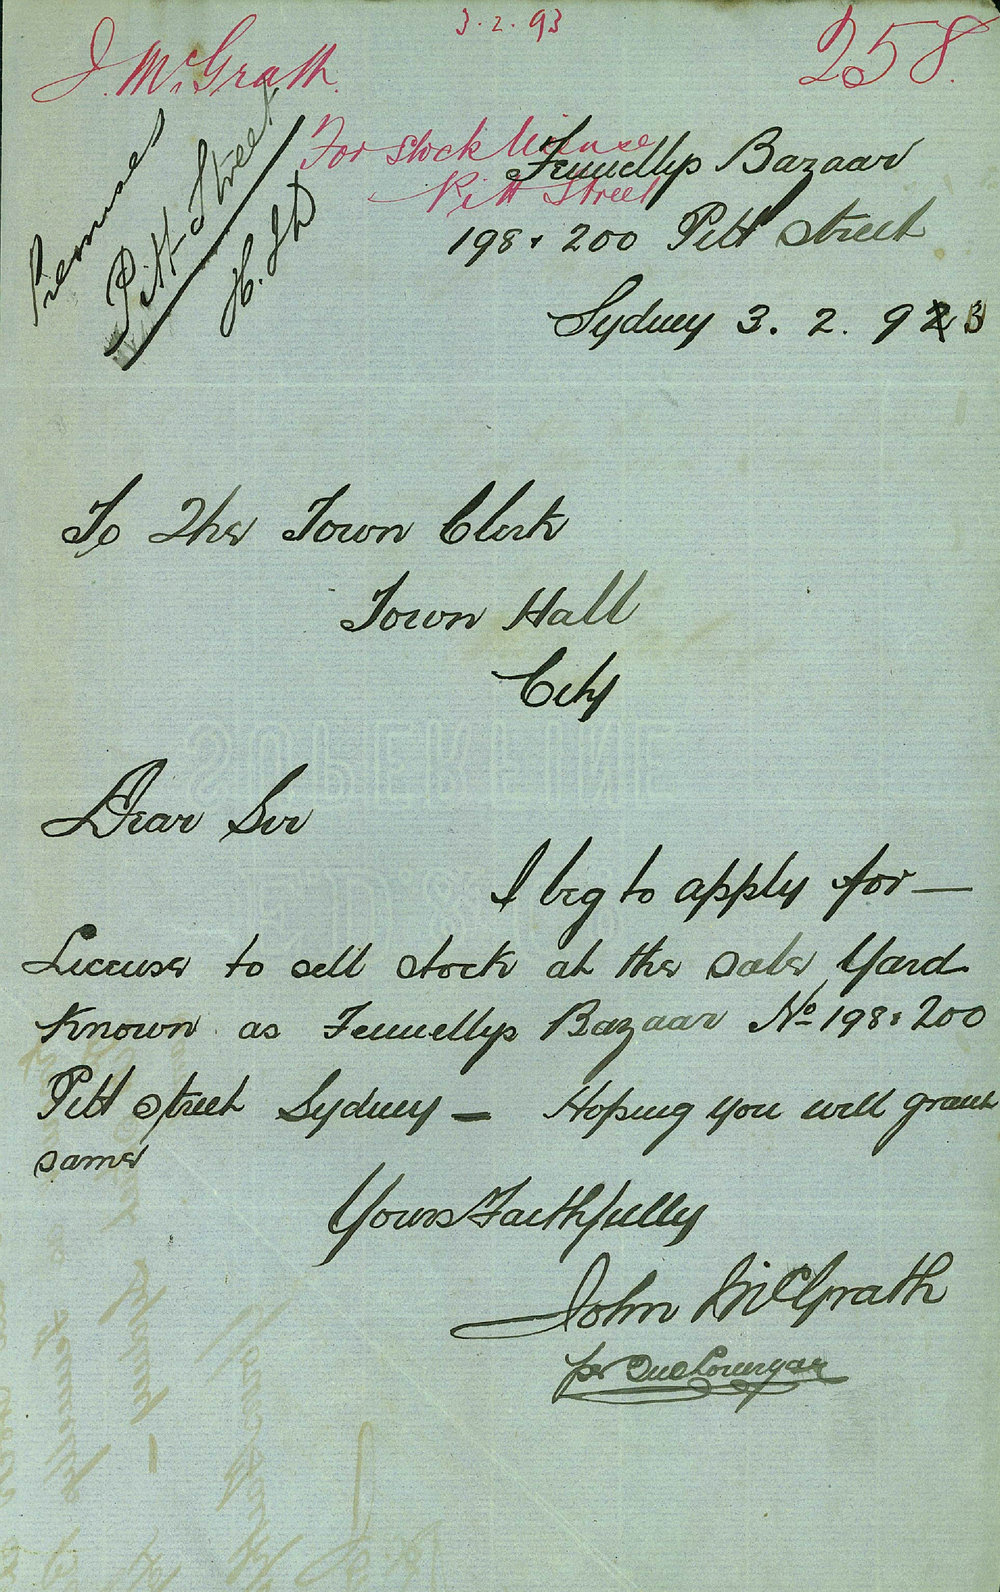 3.2.93
J. McGrath.
258.
For stock license
Pitt Street
Premises
Pitt Street
Fennellys Bazaar
198 & 200 Pitt Street
Sydney 3. 2. 923
To The Town Clerk
Town Hall
City
Dear Sir
I beg to apply for —
License to sell stock at the sale Yard
Known as Fennellys Bazaar No 198 & 200
Pitt street Sydney — Hoping you will grant
same
Yours Faithfully
John McGrath
per